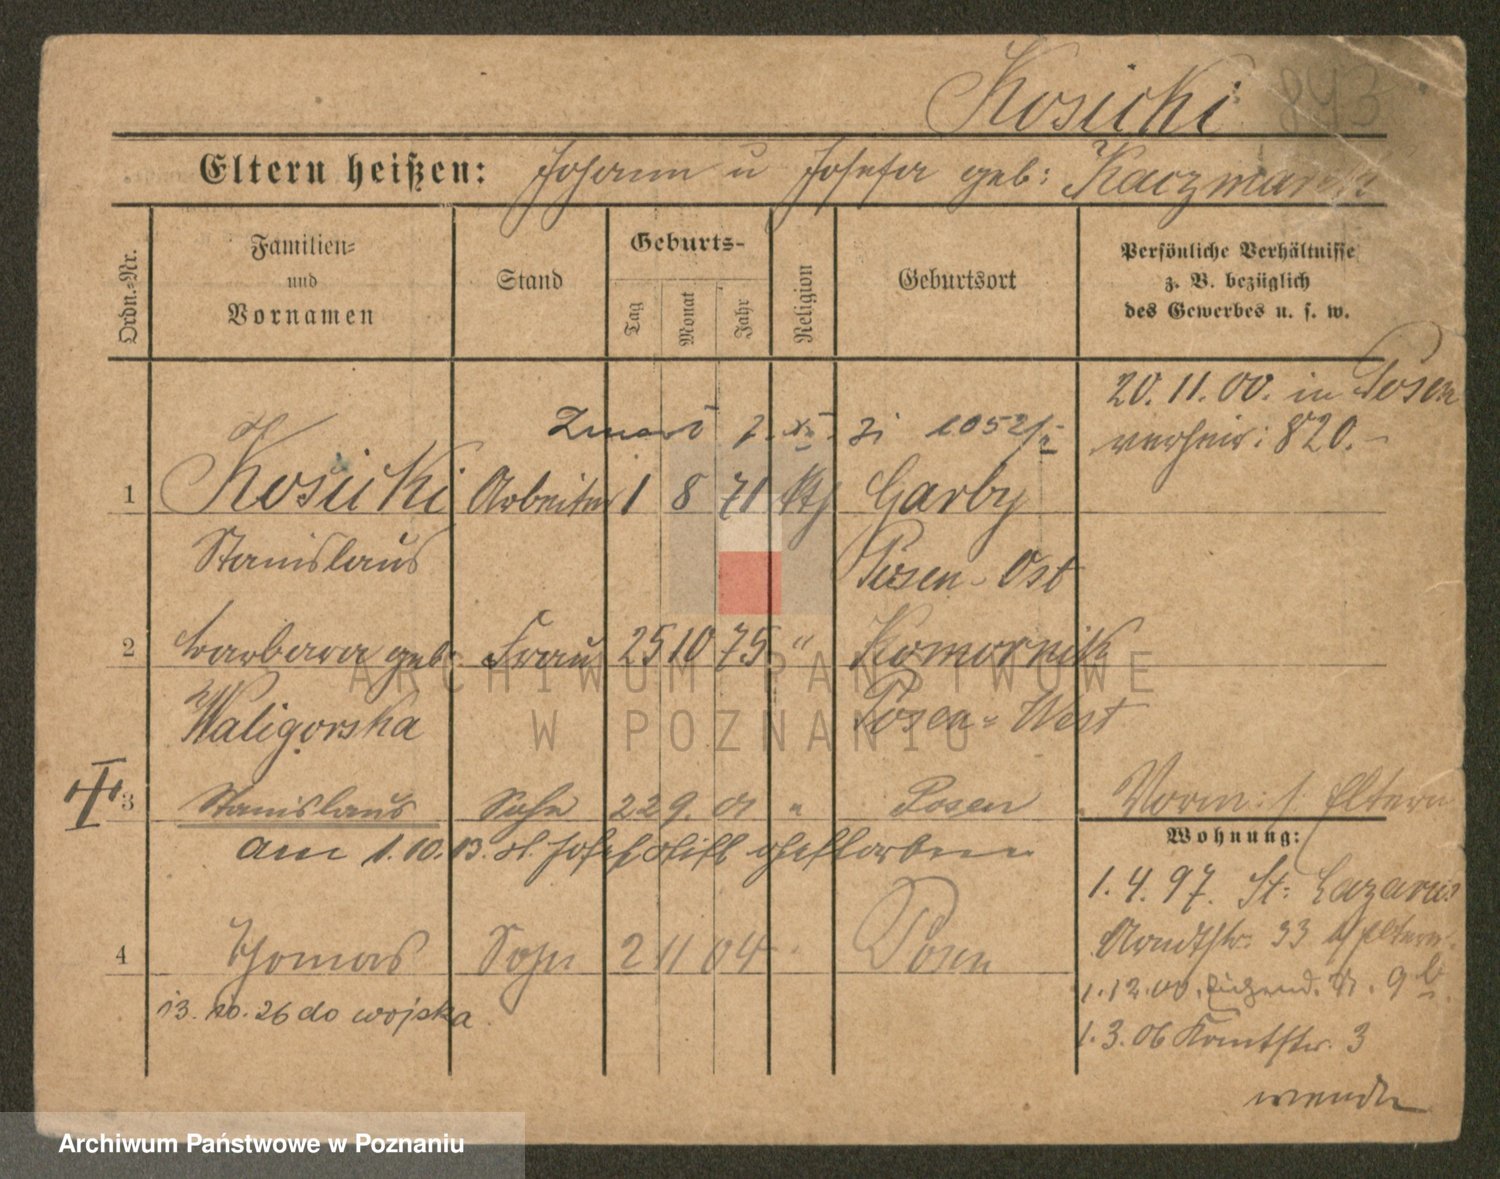 Kosicki 893
Eltern heißen: Johann u Josefa geb: Kaczmarek
Ordn.-Nr.
Familien-
und
Vornamen
Stand
Geburts-
Tag
Monat
Jahr
Religion
Geburtsort
Persönliche Verhältnisse
z. B. bezüglich
des Gewerbes u. s. w.
20. 11. 00. in Posen
verheir: 820.-
1 Kosicki Arbeiter 1 8 71 kth Garby
Stanislaus Posen-Ost
2 Barbara geb. Frau 25 10 75 " Komornik
Waligorska Posen-West
3 Stanislaus Sohn 22 9. 01 " Posen
Vorm: s. Eltern
am 1. 10. 13. Josefstift gestorben
Wohnung:
1. 4. 97. St: Lazarus
4 Thomas Sohn 2 11 04 " Posen
Arndtstr. 33 Eltern.
13. 10. 26 do wojska
1. 12. 00.
1. 3. 06 Kantstr. 3
wenden
ARCHIWUM PAŃSTWOWE
W POZNANIU
Archiwum Państwowe w Poznaniu